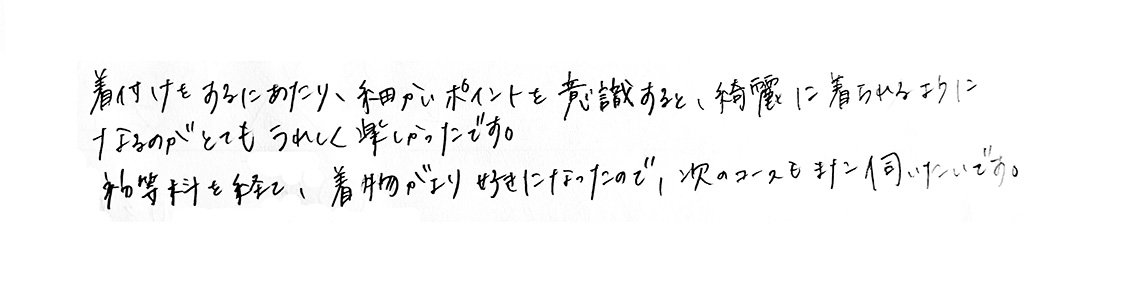 着付けをするにあたり、細かいポイントを意識すると、綺麗に着られるように
なるのがとてもうれしく楽しかったです。
初等科を経て、着物がより好きになったので、次のコースもまた伺いたいです。